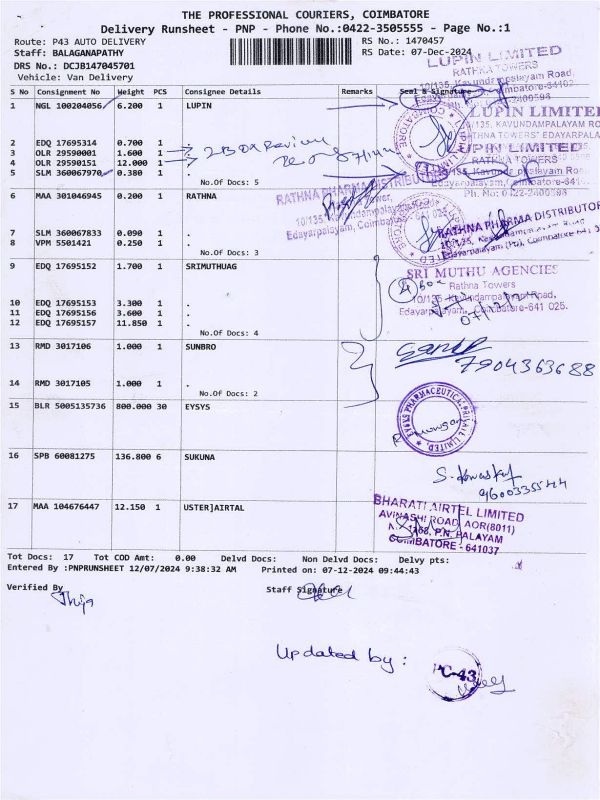 THE PROFESSIONAL COURIERS, COIMBATORE
Delivery Runsheet - PNP - Phone No.:0422-3505555 - Page No.:1
Route: P43 AUTO DELIVERY RS No.: 1470457
Staff: BALAGANAPATHY RS Date: 07-Dec-2024
DRS No.: DCJB147045701
Vehicle: Van Delivery
S No Consignment No Weight PCS Consignee Details Remarks Seal & Signature
1 NGL 100204056 6.200 1 LUPIN
2 EDQ 17695314 0.700 1 .
3 OLR 29590001 1.600 1
4 OLR 29590151 12.000 1
5 SLM 360067970 0.380 1 .
No.Of Docs: 5
6 MAA 301046945 0.200 1 RATHNA
7 SLM 360067833 0.090 1 .
8 VPM 5501421 0.250 1 .
No.Of Docs: 3
9 EDQ 17695152 1.700 1 SRIMUTHUAG
10 EDQ 17695153 3.300 1 .
11 EDQ 17695156 3.600 1 .
12 EDQ 17695157 11.850 1 .
No.Of Docs: 4
13 RMD 3017106 1.000 1 SUNBRO
14 RMD 3017105 1.000 1 .
No.Of Docs: 2
15 BLR 5005135736 800.000 30 EYSYS
16 SPB 60081275 136.800 6 SUKUNA
17 MAA 104676447 12.150 1 USTER]AIRTAL
LUPIN LIMITED
RATHNA TOWERS
LUPIN LIMITED
LUPIN LIMITED
RATHNA TOWERS
RATHNA PHARMA DISTRIBUTOR
SRI MUTHU AGENCIES
Rathna Towers
10/135, Kavundampalayam Road,
Edayarpalayam, Coimbatore-641 025.
7904363688
BHARATI AIRTEL LIMITED
AVINASHI ROAD, AOR(8011)
P.N. PALAYAM
COIMBATORE - 641037
Tot Docs: 17 Tot COD Amt: 0.00 Delvd Docs: Non Delvd Docs: Delvy pts:
Entered By :PNPRUNSHEET 12/07/2024 9:38:32 AM Printed on: 07-12-2024 09:44:43
Verified By Staff Signature
Updated by : PC-43